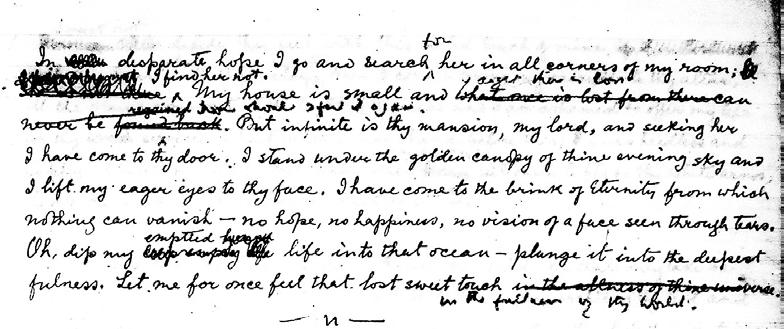 for
In desparate hope I go and search her in all corners of my room;
I find her not.
My house is small and what once is lost from there can
regained
never be found back. But infinite is thy mansion, my lord, and seeking her
I have come to thy door. I stand under the golden canopy of thine evening sky and
I lift my eager eyes to thy face. I have come to the brink of Eternity from which
nothing can vanish — no hope, no happiness, no vision of a face seen through tears.
emptied
Oh, dip my life into that ocean — plunge it into the deepest
fulness. Let me for once feel that lost sweet touch in the allness of thine universe.
in the fullness of thy world.
— n —